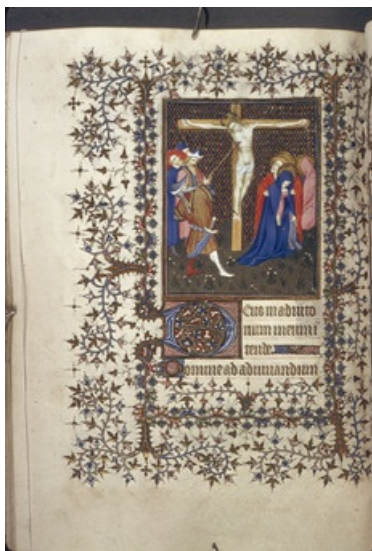 Deus in adiuto
rium meum i
tende
Domine ad adiuuandum